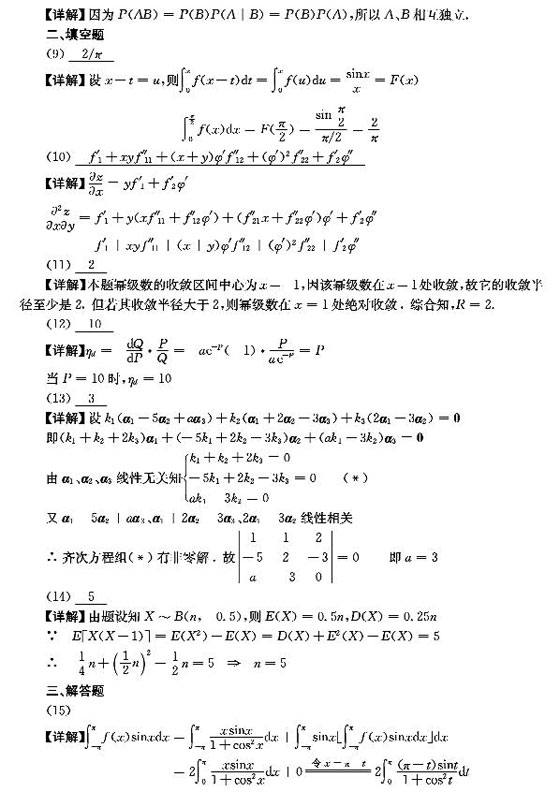 【详解】因为 P(AB) = P(B)P(A | B) = P(B)P(A),所以 A、B 相互独立.
二、填空题
(9) 2/π
【详解】设 x−t = u,则∫₀ˣ f(x−t)dt = ∫₀ˣ f(u)du = sinx/x = F(x)
∫₀^(π/2) f(x)dx − F(π/2) − (sin π/2)/(π/2) − 2/π
(10) f′₁+xyf″₁₁+(x+y)φ′f″₁₂+(φ′)²f″₂₂+f′₂φ″
【详解】∂z/∂x − yf′₁+f′₂φ′
∂²z/∂x∂y = f′₁+y(xf″₁₁+f″₁₂φ′)+(f″₂₁x+f″₂₂φ′)φ′+f′₂φ″
f′₁ | xyf″₁₁ | (x | y)φ′f″₁₂ | (φ′)²f″₂₂ | f′₂φ″
(11) 2
【详解】本题幂级数的收敛区间中心为 x− 1,因该幂级数在 x−1 处收敛,故它的收敛半
径至少是 2. 但若其收敛半径大于 2,则幂级数在 x = 1 处绝对收敛. 综合知,R = 2.
(12) 10
【详解】η_d = dQ/dP · P/Q = ae⁻ᴾ( 1) · P/(ae⁻ᴾ) = P
当 P = 10 时,η_d = 10
(13) 3
【详解】设 k₁(α₁−5α₂+aα₃)+k₂(α₁+2α₂−3α₃)+k₃(2α₁−3α₂) = 0
即(k₁+k₂+2k₃)α₁+(−5k₁+2k₂−3k₃)α₂+(ak₁−3k₂)α₃ − 0
由 α₁、α₂、α₃ 线性无关知 { k₁+k₂+2k₃ − 0
−5k₁+2k₂−3k₃ = 0 (*)
ak₁ 3k₂ − 0
又 α₁ 5α₂ | aα₃、α₁ | 2α₂ 3α₃、2α₁ 3α₂ 线性相关
∴ 齐次方程组(*)有非零解. 故 | 1 1 2 |
| −5 2 −3 | = 0 即 a = 3
| a 3 0 |
(14) 5
【详解】由题设知 X ~ B(n, 0.5),则 E(X) = 0.5n,D(X) = 0.25n
∵ E[X(X−1)] = E(X²)−E(X) = D(X)+E²(X)−E(X) = 5
∴ 1/4 n+(1/2 n)²−1/2 n = 5 ⇒ n = 5
三、解答题
(15)
【详解】∫₋π^π f(x)sinxdx − ∫₋π^π xsinx/(1+cos²x) dx | ∫₋π^π sinx[∫₋π^π f(x)sinxdx]dx
− 2∫₀^π xsinx/(1+cos²x) dx | 0 令 x−π t 2∫₀^π (π−t)sint/(1+cos²t) dt